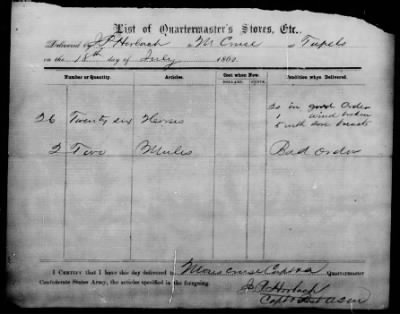 List of Quartermaster's Stores, Etc.
Delivered by J P Horbach to M Cruse at Tupelo
on the 18th day of July 186
Number or Quantity. Articles. Cost when New. Condition when Delivered.
DOLLARS. CENTS.
20 in good Order
26 Twenty six Horses 1 wind broken
5 with sore breasts
2 Two Mules Bad order
I CERTIFY that I have this day delivered to Cruse Capt & Quartermaster
Confederate States Army, the articles specified in the foregoing.
J P Horbach
Capt & AQM